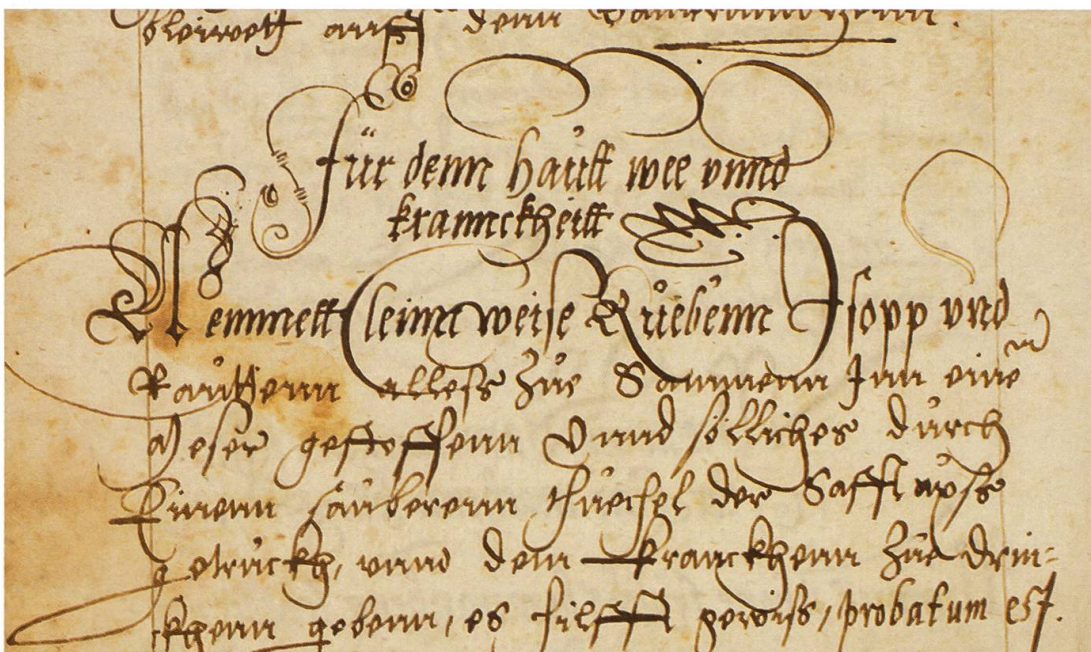 auff denn
für denn haütt wee vnnd
kranckheitt
Nemmett Cleinn weise Rüebenn Isopp vnd
Rauttenn alless Zue Sammenn Inn einem
Meser gestossenn Vnnd solliches durch
Einenn sauberenn thuechel der Safft auss
getruckh, vnnd dem kranckhenn Zue drin=
ckhenn gebenn, es hilfft gewiss, probatum est.